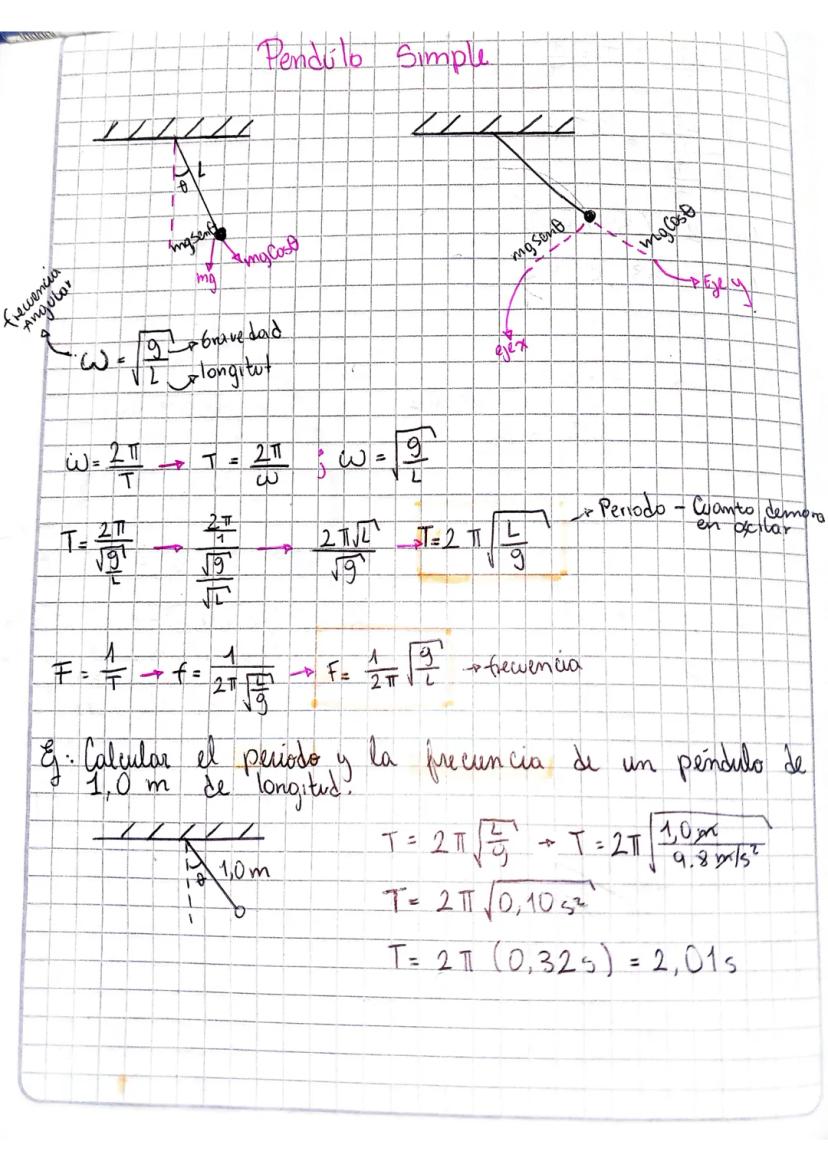 Pendúlo Simple
θ L
mgsenθ
mgCosθ
mg
mgsenθ
mgCosθ
Eje y
eje x
frecuencia Angular
ω = √(g/L) → Gravedad
→ longitut
ω = 2π/T → T = 2π/ω ; ω = √(g/L)
T = 2π/√(g/L) → (2π/1)/(√g/√L) → 2π√L/√g → T = 2π √(L/g) → Periodo – Cuanto demora en oscilar
F = 1/T → f = 1/(2π√(L/g)) → F = 1/2π √(g/L) → frecuencia
Ej: Calcular el periodo y la frecuencia de un péndulo de
1,0 m de longitud.
θ 1,0 m
T = 2π√(L/g) → T = 2π √(1,0 m/9.8 m/s²)
T = 2π √(0,10 s²)
T = 2π (0,32 s) = 2,01 s